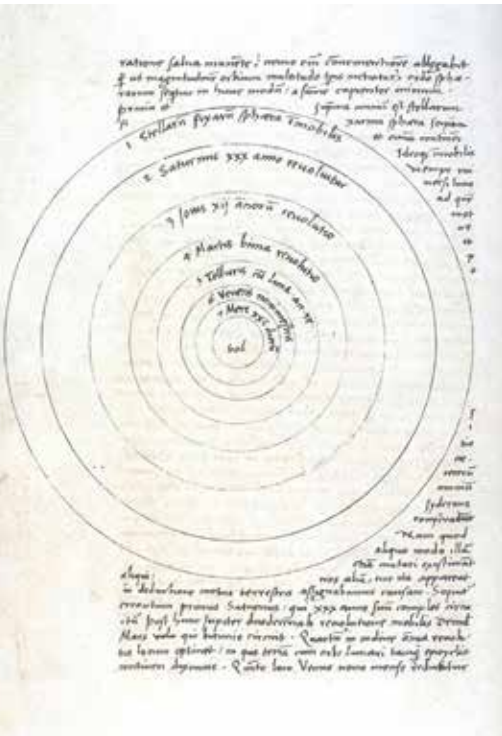 ratione salva manẽte: nemo em̃ convenientiorẽ allegabit
q̃ ut magnitudinẽ orbium multitudo tp̃is metiatur: ordo sphæ-
rarum sequitur in hunc modũ: a summo capientes initium.
prima et suprema omniũ est stellarum
fixarum sphæra seipsam
et omnia continens
Ideoq3 immobilis
nempe uni
versi locus
ad quẽ
mot
1 Stellarũ fixarũ sphæra imobilis
2 Saturnus xxx anno revoluitur
3 Jovis xij annorũ revolutio
4 Martis bima revolutio
5 Telluris cũ luna an. re.
6 Veneris nonimestris
7 Merc xxx dierũ
Sol
ne.
ceterorũ
omniũ
syderum
conferatur
Nam quod
aliquo modo illã
etiã mutari existimãt
aliqui: nos aliã, cur ita appareat
in deductione motus terrestris assignabimus causam. Sequitur
errantium primus Saturnus: qui xxx anno suũ complet circu
itũ post hunc Jupiter duodecennali revolutione mobilis Deinde
Mars volo qui biennio circuit. Quartũ in ordine annua revolu
tio locum optinet: in quo terrã cum orbe lunari tanq̃ epicyclio
contineri diximus. Quinto loco Venus nono mense reducitur